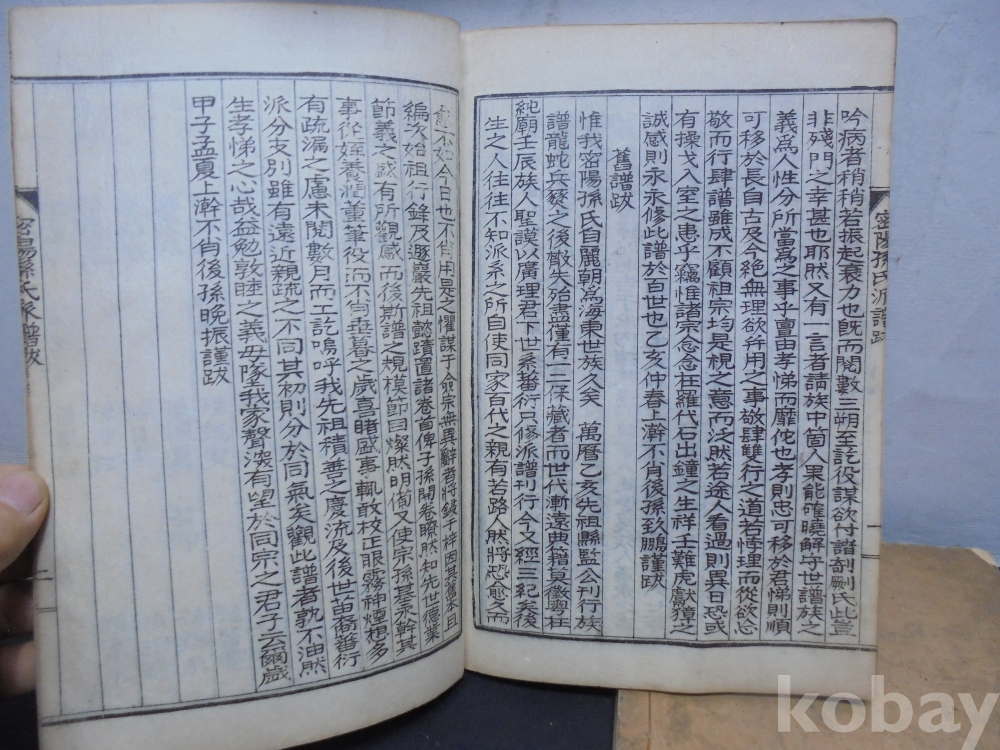 吟病者稍稍若振起衰力也旣而閱數三朔至訖役謀欲付諸剞劂氏此豈
非殘門之幸甚也耶然又有一言者請族中箇人果能確曉解乎世譜族之
義爲人性分所當爲之事乎亶由孝悌而靡佗也孝則忠可移於君悌則順
可移於長自古及今絶無理欲幷用之事敬肆雙行之道若悖理而從欲念
敬而行肆譜雖成不顧祖宗均是視之意而泛然若途人看過則異日恐或
有操戈入室之患乎竊惟諸宗念念在羅代石出鐘之生祥壬難虎獻獐之
誠感則永永修此譜於百世也乙亥仲春上澣不肖後孫致鵬謹跋
舊譜跋
惟我密陽孫氏自麗朝爲海東世族久矣 萬曆乙亥先祖縣監公刊行族
譜龍蛇兵燹之後散失殆盡僅有一二保藏者而世代漸遠典籍莫徵粤在
純廟壬辰族人聖謨以廣理君下世系蕃衍只修派譜刊行今又經三紀矣後
生之人往往不知派系之所自使同家百代之親有若路人然將恐愈久而
愈不如今日也不肖用是之懼謀于僉宗無異辭者將鋟于梓因其舊本且
編次始祖行錄及遯巖先祖懿蹟置諸卷首俾子孫開卷瞭然知先世德業
節義之盛有所觀感而後斯譜之規模節目燦然明備又使宗孫基永幹其
事從姪養潤董筆役而不肖垂暮之歲喜睹盛事輒敢校正眼霧神煙想多
有疏漏之慮未閱數月而工訖嗚呼我先祖積善之慶流及後世苗裔蕃衍
派分支別雖有遠近親疏之不同其初則分於同氣矣觀此譜者孰不油然
生孝悌之心哉益勉敦睦之義毋墜我家聲深有望於同宗之君子云爾歲
甲子孟夏上澣不肖後孫晩振謹跋
密陽孫氏派譜跋
密陽孫氏派譜跋
kobay